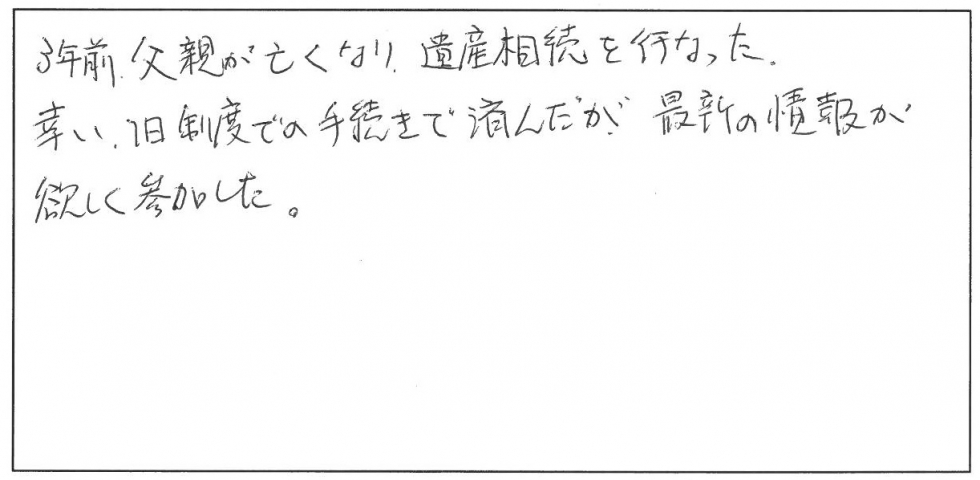 3年前、父親が亡くなり、遺産相続を行なった。
幸い、旧制度での手続きで済んだが、最新の情報が
欲しく参加した。